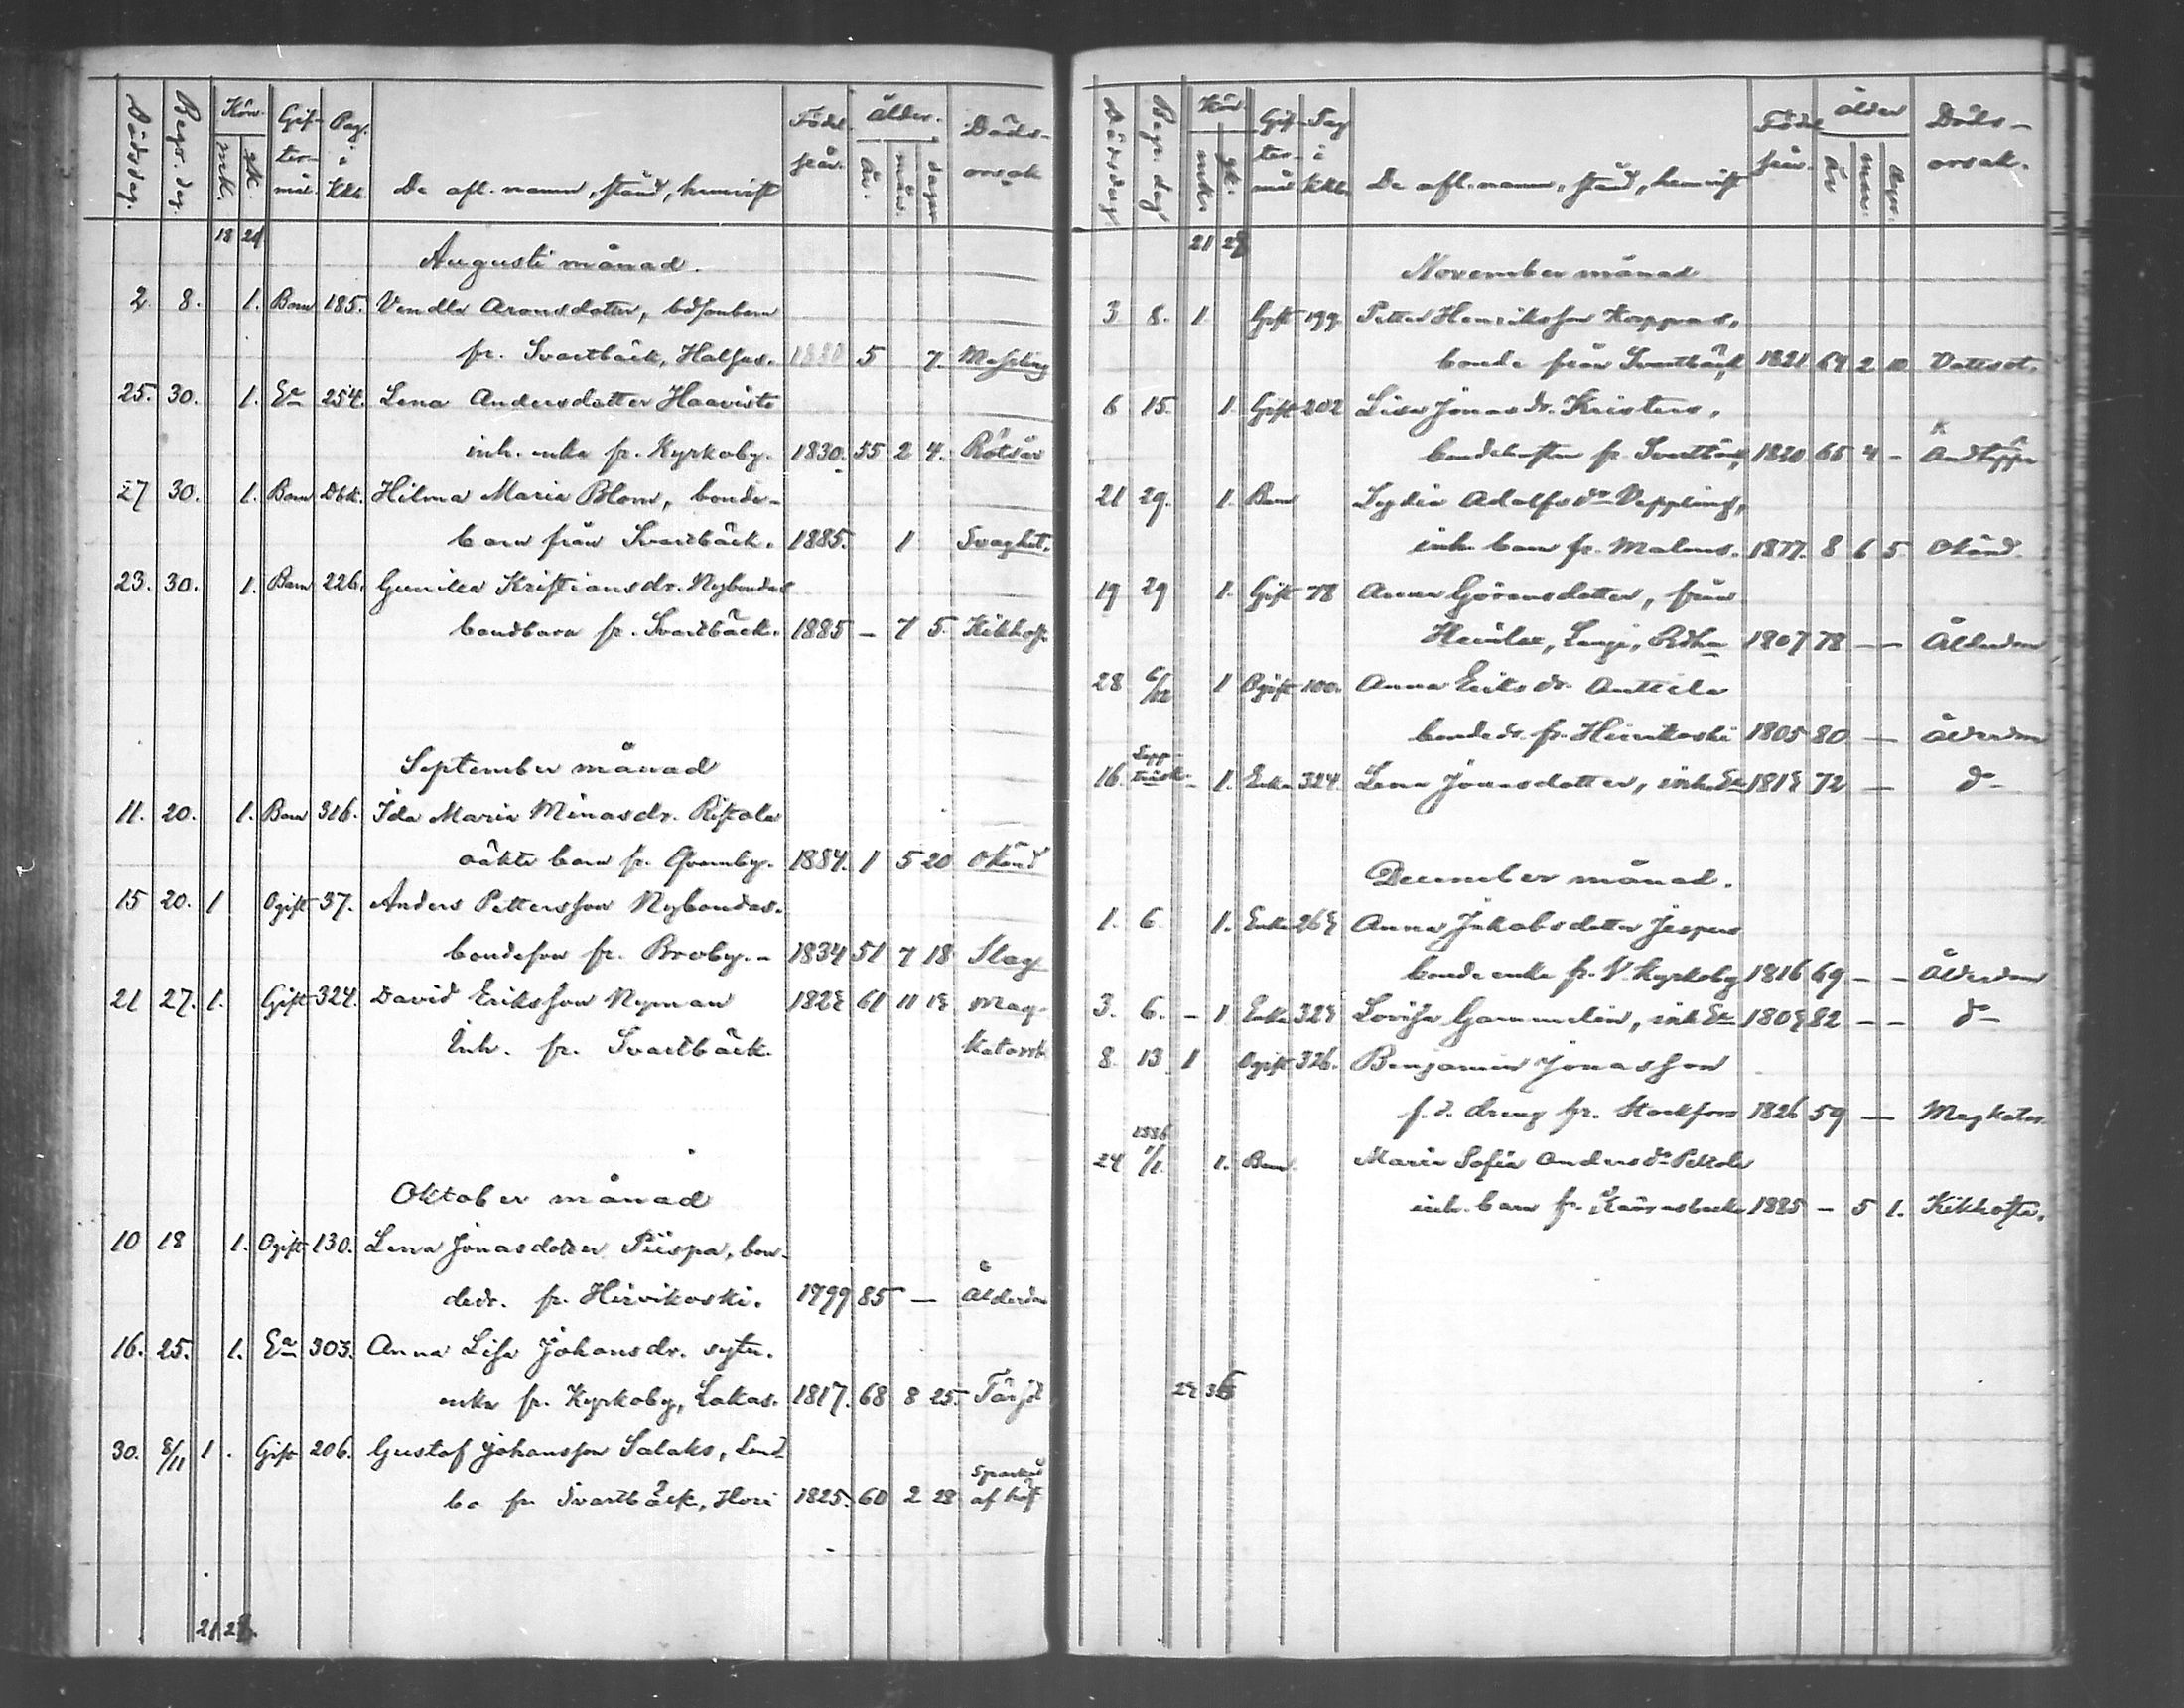 Dödsdag. Begr. dag. Kön. mk. qk. Gif-ter-mål. Pag. i Kkb. De afl. namn, stånd, hemvist Född. från. Ålder. år. mån. dagar Döds-orsak
18 24
Augusti månad.
2. 8. 1. Barn 185. Vendla Aronsdotter,
fr. Svartbäck, 5 7. Messling
25. 30. 1. Ea 254. Lena Andersdotter Haavisto
inh. enka fr. Kyrkoby. 1830. 55 2 4. Rötsår
27 30. 1. Barn Dbk. Hilma Maria Blom, bonde-
barn från Svartbäck. 1885. 1 Svaghet.
23. 30. 1. Barn 226. Gunilla Kristiansdr. Nybondas
bondbarn fr. Svartbäck. 1885 – 7 5. Kikhost
September månad
11. 20. 1. Barn 316. Ida Maria Minasdr. Ristola
oäkta barn fr. Qvarnby. 1884. 1 5 20 Okänd
15 20. 1 Ogift 37. Anders Pettersson Nybondas.
bondeson fr. Broby. – 1834 51 7 18 Slag
21 27. 1. Gift 324. David Eriksson Nyman 61 11 Mag-
Inh. fr. Svartbäck. Katarrh
Oktober månad
10 18 1. Ogift 130. Lena Jonasdotter Piispa, bon-
dedr. fr. Hirvikoski. 1799 85 – Ålderdom
16. 25. 1. Ea 303. Anna Lisa Johansdr. sytn.
enka fr. Kyrkoby, Lakas. 1817. 68 8 25.
30. 8/11 1. Gift 206. Gustaf Johansson Salaks, Land
bo fr. Svartbäck, 1825. 60 2 28 Sparkad af häst
21 28.
Dödsdag Begr. dag Kön mk. qk. Gif-ter-mål Pag i Kkb. De afl. namn, stånd, hemvist Född från. ålder år mån. dgr. Döds-orsak.
21 28
November månad
3 8. 1. Gift 199. Petter Henriksson Koppars,
bonde från Svartbäck, 1821 64 2 10 Vattsot.
6 15. 1. Gift 202 Lisa Jonasdr. Kristers,
bondehustru fr. Svartbäck, 1820. 65 4 – Andtäppa
21 29. 1. Barn Lydia Adolfsdr
inh. barn fr. Malms. 1877. 8 6 5. Okänd.
19 29 1. Gift 78 Anna Göransdotter, från
1807 78 – – Ålderdom
28 6/12 1 Ogift 100. Anna Eriksdr. Anttila
bondedr. fr. Hirvikoski 1805 80 – Ålderdom
16. 1. Enka 324. Lena Jonasdotter, inh. Ea 72 – d–
December månad.
1. 6. 1. Enka Anna Jakobsdotter Jespers
bonde enka fr. V. Kyrkoby 1816 69 – – Ålderdom
3. 6. – 1 Enka Lovisa Gammelin, inh Ea 82 – – d–
8. 13 1 Ogift 326. Benjamin Jonasson
f.d. dreng fr. Stockfors 1826 59 – Magkatar.
24 1886 1/1. 1. Barn. Maria Sofia Andersdr Pekkola
inh. barn fr. 1885 – 5 1. Kikhosta.